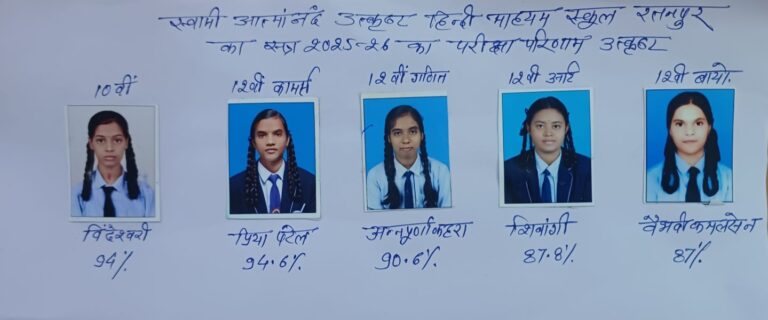 स्वामी आत्मानंद उत्कृष्ट हिन्दी माध्यम स्कूल रतनपुर
का सत्र 2025-26 का परीक्षा परिणाम उत्कृष्ट
10वीं 12वीं कामर्स 12वीं गणित 12वी आर्ट 12वी बायो.
विंदेश्वरी प्रिया पटेल अन्नपूर्णा कहरा शिवांगी वैभवी कमलसेन
94% 94.6% 90.6% 87.8% 87%